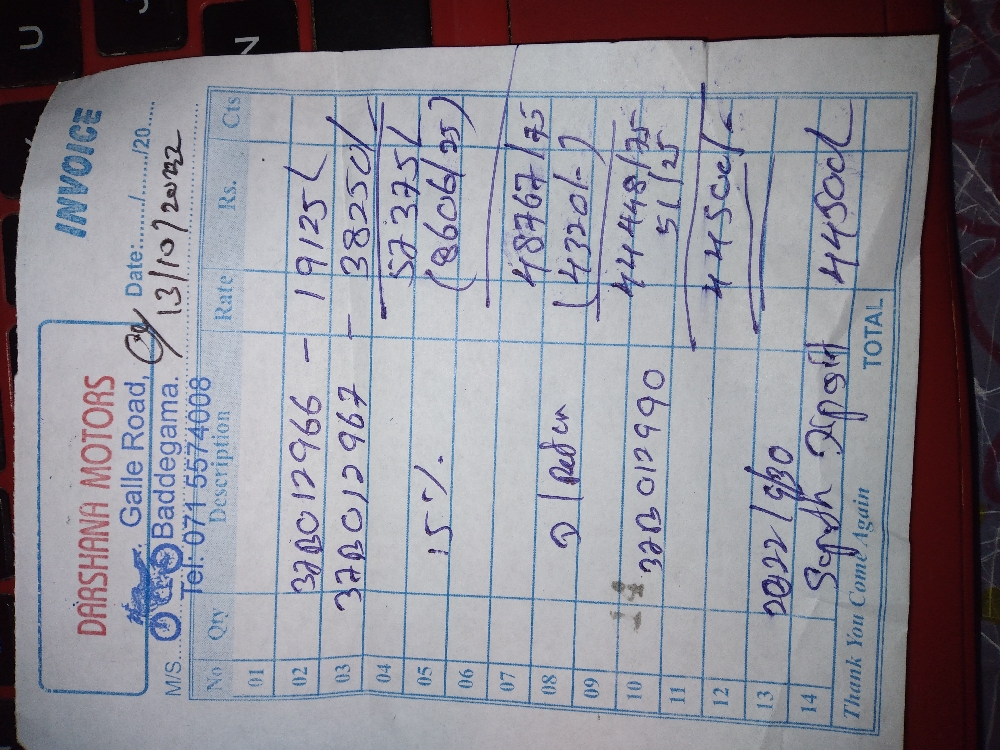 INVOICE
DARSHANA MOTORS
Galle Road,
Baddegama.
Tel: 071 5574008
M/S.
Date:....../....../20......
13/10/2022
No Qty Description Rate Rs. Cts
01
02 37B012966 - 19125/
03 37B012967 - 38250/
04 57375/
05 15% (8606/25)
06
07 48767/75
08 (4320/-)
09
10 37B012990 44448/75
51/25
11
12 44500/-
13 2022/9/30
14 44500/
Thank You Come Again TOTAL
U
N